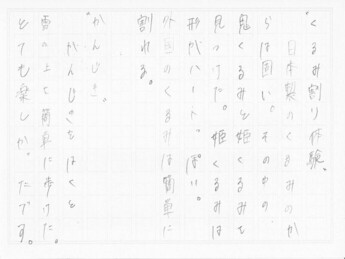 くるみ割り体験。
日本製のくるみのか
らは固い。
鬼くるみと姫くるみを
見つけた。姫くるみは
形がハートっぽい。
外国のくるみは簡単に
割れる。
かんじき。
かんじきをはくと
雪の上を簡単に歩けた。
とても楽しかったです。